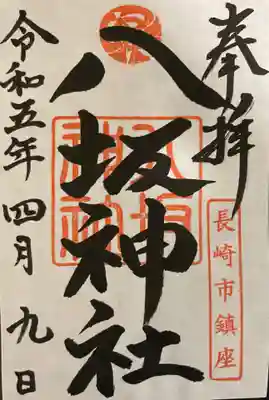 奉拝
長崎市鎮座
八坂神社
令和五年四月九日